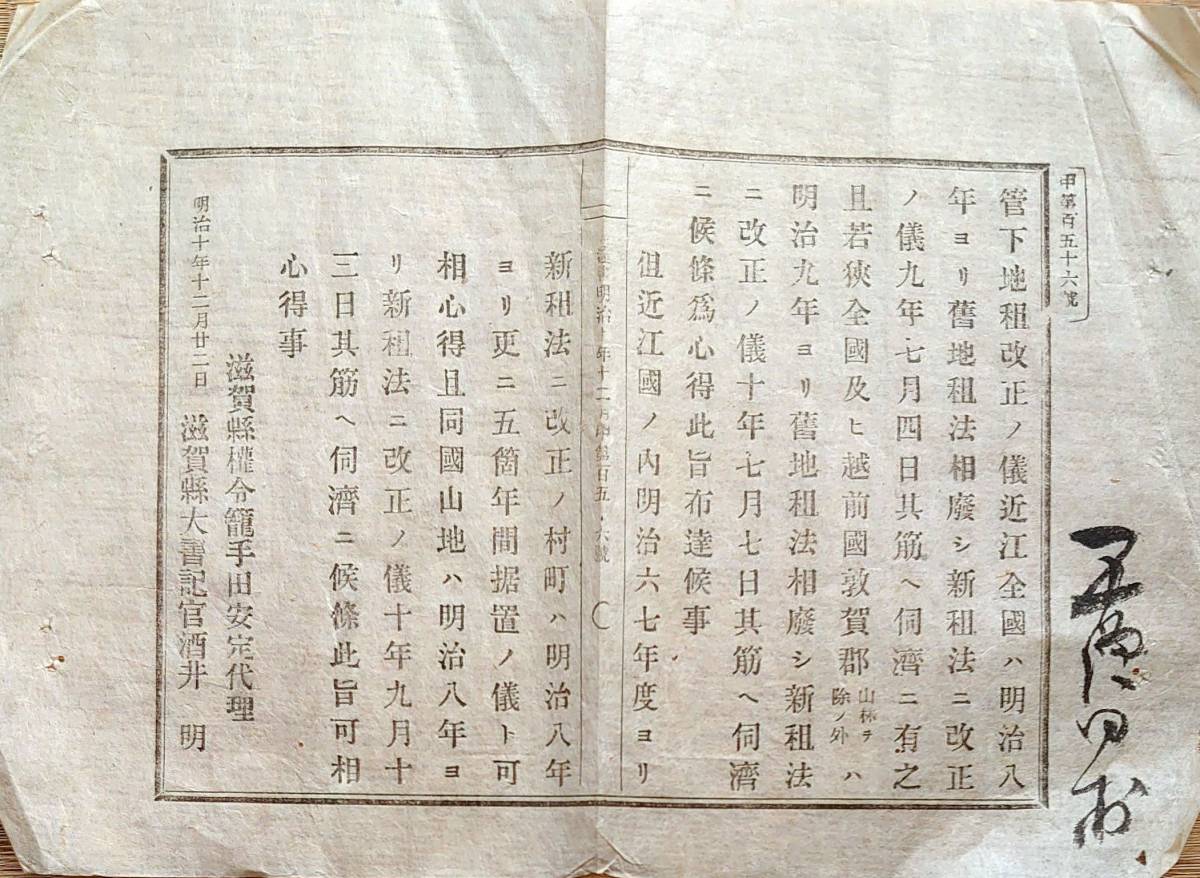 甲第百五十六號
管下地租改正ノ儀近江全國ハ明治八
年ヨリ舊地租法相廢シ新租法ニ改正
ノ儀九年七月四日其筋ヘ伺濟ニ有之
且若狹全國及ヒ越前國敦賀郡山林ヲ除ノ外ハ
明治九年ヨリ舊地租法相廢シ新租法
ニ改正ノ儀十年七月七日其筋ヘ伺濟
ニ候條爲心得此旨布達候事
但近江國ノ內明治六七年度ヨリ
明治 年十二月 第百五 六號
新租法ニ改正ノ村町ハ明治八年
ヨリ更ニ五箇年間据置ノ儀ト可
相心得且同國山地ハ明治八年ヨ
リ新租法ニ改正ノ儀十年九月十
三日其筋ヘ伺濟ニ候條此旨可相
心得事
滋賀縣權令籠手田安定代理
明治十年十二月廿二日 滋賀縣大書記官酒井 明